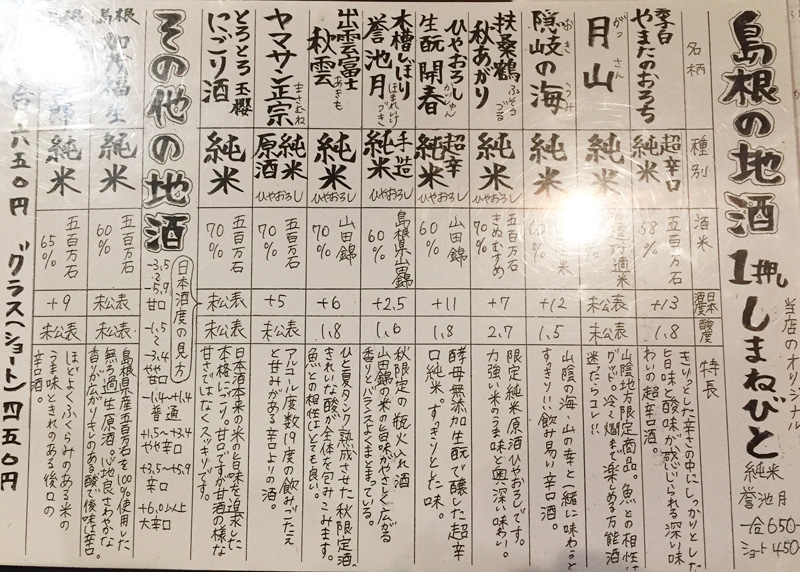 島根の地酒
1押し
しまねびと
当店のオリジナル
純米
誉池月
一合650-
ショート450-
名柄
種別
酒米
日本酒度
酸度
特長
李白
やまたのおろち
超辛口
純米
五百万石
58%
+13
1,8
きりっとした辛さの中にしっかりとした
旨味と酸味が感じられる深い味
わいの超辛口酒。
月山
がっさん
純米
未公表
未公表
山陰地方限定商品。魚との相性は
グッド。冷〜燗まで楽しめる万能酒
迷ったらコレ!!
隠岐の海
おきうみ
純米
+12
1,5
山陰の海、山の幸と一緒に味わうと
すっきりいい飲み易い辛口酒。
扶桑鶴
ふそうづる
秋あがり
純米
ひやおろし
五百万石
きぬむすめ
70%
+7
2,7
限定純米原酒ひやおろしです。
力強い米のうま味と奥深い味わい。
ひやおろし
生酛 開春
かいしゅん
超辛
純米
ひやおろし
山田錦
60%
+11
1,8
酵母無添加生酛で醸した超辛
口純米。すっきりとした味。
木槽しぼり
誉池月
ほまれいけづき
手造
純米
ひやおろし
島根県山田錦
60%
+2,5
1,6
秋限定の瓶火入れ酒
山田錦の米の旨味がやさしく広がる
香りとバランスよくまとまっている。
出雲富士
秋雲
あきぐも
純米
ひやおろし
山田錦
70%
+6
1,8
ひと夏タンク熟成させた秋限定酒。
きれいな酸が全体を包みこみます。
魚との相性はとても良い。
ヤマサン正宗
まさむね
純米
原酒
ひやおろし
五百万石
70%
+5
未公表
アルコール度数19度の飲みごたえ
と甘みがある辛口よりの酒。
とろとろ 玉櫻
にごり酒
純米
五百万石
70%
未公表
未公表
日本酒本来の米の旨味を追求した
本格にごり。甘口ですが甘酒の様な
甘さではなく、スッキリです。
その他の地酒
日本酒度の見方
-3,5〜-5,9
甘口
-1,5〜-3,4
やや甘口
-1,4〜+1,4
普通
+1,5〜+3,4
やや辛口
+3,5〜+5,9
辛口
+6,0以上
大辛口
島根
加茂福
純米
五百万石
60%
未公表
未公表
島根県産五百万石を100%使用した
無ろ過生原酒。心地良さわやかな
香りが広がりキレのある酸で後味は辛口。
純米
五百万石
65%
+9
未公表
ほどよくふくらみのある米の
うま味ときれのある後口の
辛口酒。
一合 六五〇円
グラス(ショート)四五〇円